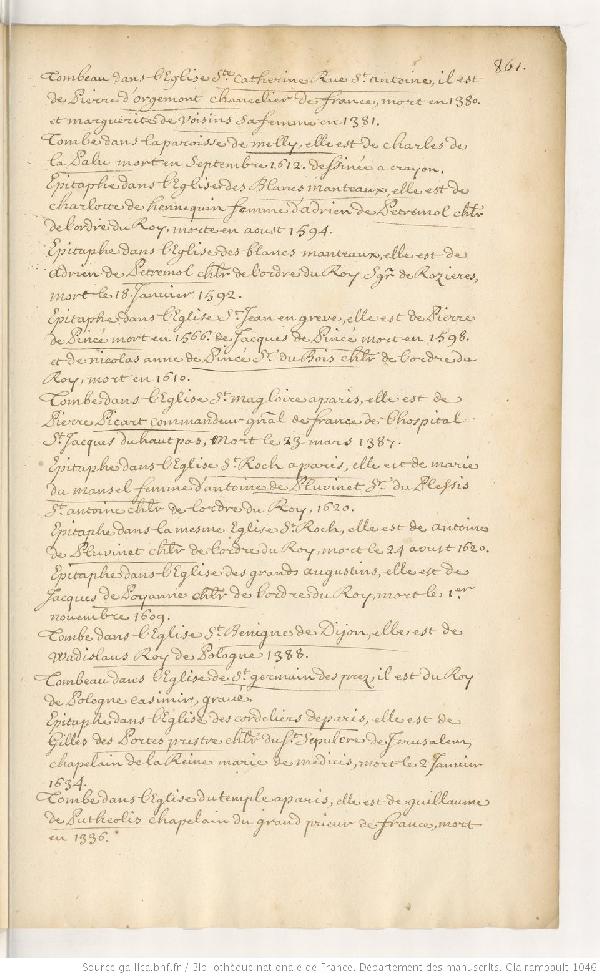 861.
Tombeau dans l'Eglise Ste Catherine Rue St. antoine, il est
de Pierre d'orgemont chancelier de france, mort en 1380.
et marguerite de Voisins sa femme en 1381.
Tombe dans la paroisse de melly, elle est de charles de
la Palu mort en Septembre 1612. dessinée a crayon.
Epitaphe dans l'Eglise des Blancs manteaux, elle est de
charlotte de hennequin femme d'adrien de Petremol chlr
de l'ordre du Roy, morte en aoust 1594.
Epitaphe dans l'Eglise des blancs manteaux, elle est de
adrien de Petremol chlr de l'ordre du Roy Sgr. de Rozieres,
mort le 18 Janvier 1592.
Epitaphe dans l'Eglise St. Jean en greve, elle est de Pierre
de Pincé mort en 1566. de Jacques de Pincé mort en 1598.
et de nicolas anne de Pincé Sr. du Bois chlr de l'ordre du
Roy, mort en 1610.
Tombe dans l'Eglise St. magloire a paris, elle est de
Pierre Picart commandeur gnal de france de l'hospital
St. Jacques du haut pas, mort le 23 mars 1387.
Epitaphe dans l'Eglise St. Roch a paris, elle est de marie
du mansel femme d'antoine de Pluvinet Sr. du Plessis
St. antoine chlr de l'ordre du Roy, 1620.
Epitaphe dans la mesme Eglise St. Roch, elle est de antoine
de Pluvinet chlr de l'ordre du Roy, mort le 24 aoust 1620.
Epitaphe dans l'Eglise des grands augustins, elle est de
Jacques de Poyanne chlr de l'ordre du Roy, mort le 1er
novembre 1609.
Tombe dans l'Eglise St. Benigne de Dijon, elle est de
Wadislaus Roy de Pologne 1388.
Tombeau dans l'Eglise de St. germain des prez, il est du Roy
de Pologne casimir, gravé.
Epitaphe dans l'Eglise des cordeliers de paris, elle est de
Gilles des Portes prestre chlr du St. Sepulcre de Jerusalem,
chapelain de la Reine marie de medicis, mort le 2 Janvier
1634.
Tombe dans l'Eglise du temple a paris, elle est de guillaume
de Putheolis chapelain du grand prieur de france, mort
en 1336.
Source gallica.bnf.fr / Bibliothèque nationale de France. Département des manuscrits. Clairambault 1046